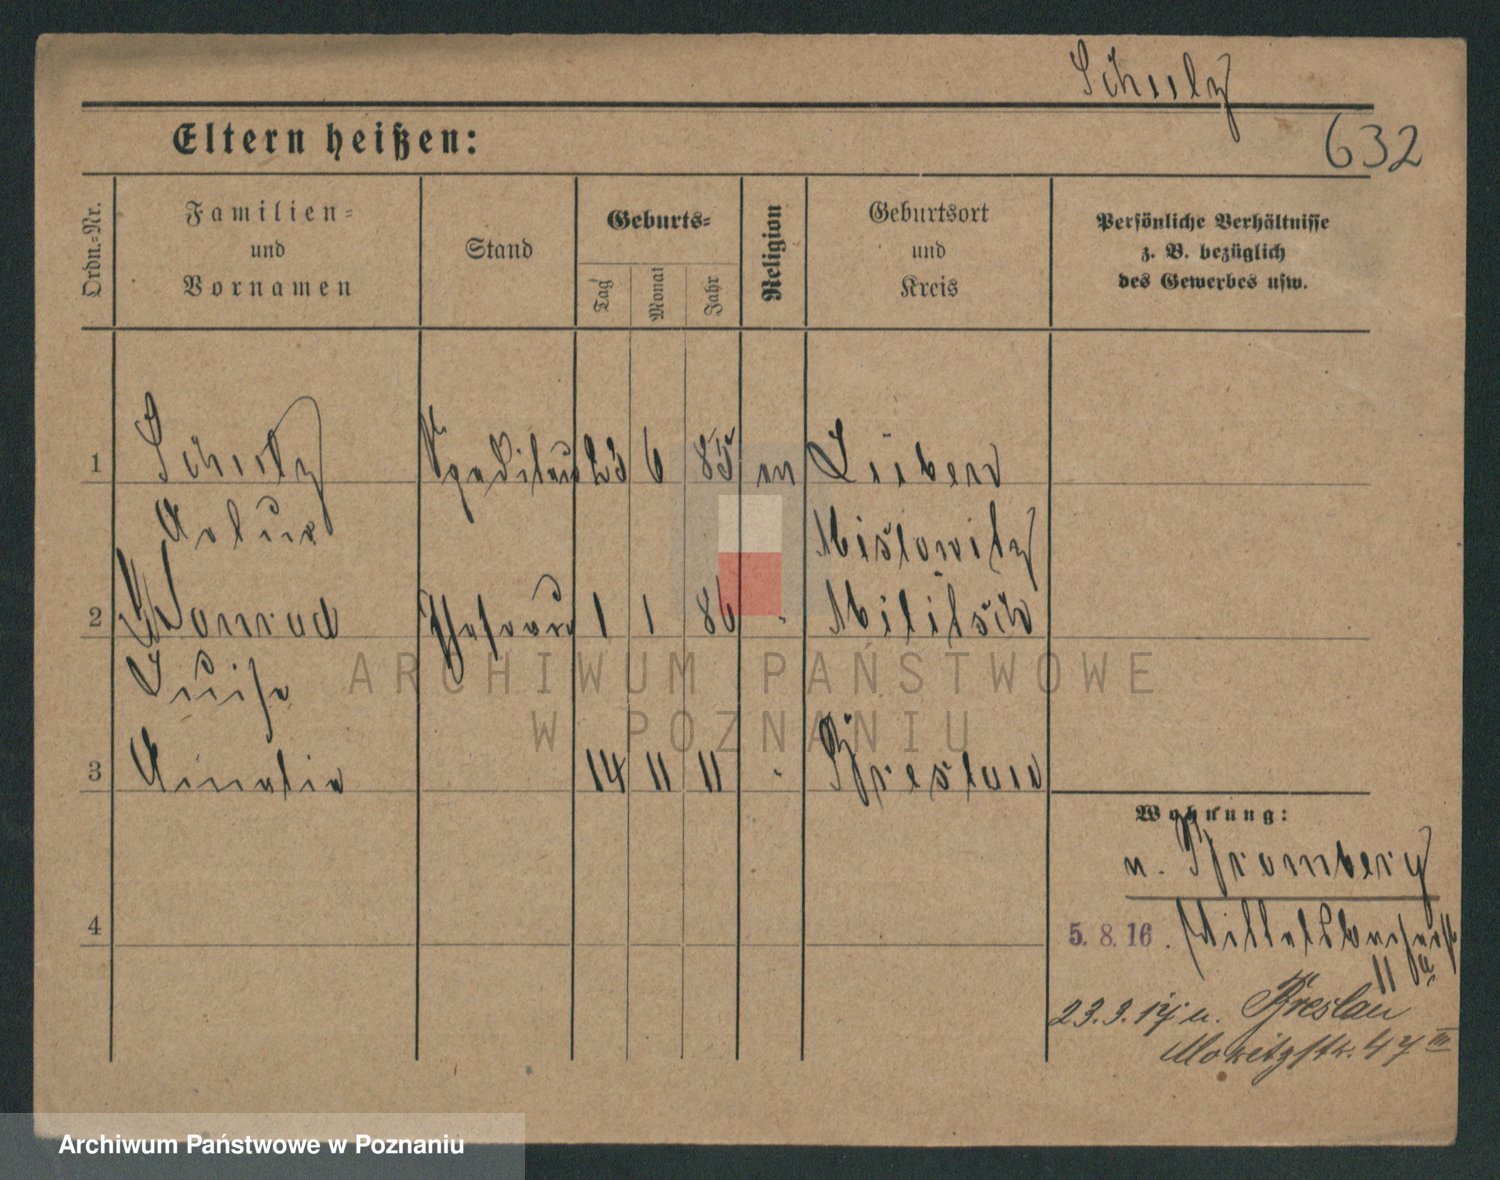 Schulz
Eltern heißen:
632
Ordn.-Nr.
Familien-
und
Vornamen
Stand
Geburts-
Tag
Monat
Jahr
Religion
Geburtsort
und
Kreis
Persönliche Verhältnisse
z. B. bezüglich
des Gewerbes usw.
1 Schulz Spediteur 23 6 85 ev
Artur Mislowitz
2 Konrad Ehefrau 1 1 86 Militsch
Luise
3 Amalie 14 11 11 Breslau
Wohnung:
n. Bromberg
4
5.8.16.
11
23.3.17 n. Breslau
Moritzstr. 47 III
ARCHIWUM PAŃSTWOWE
W POZNANIU
Archiwum Państwowe w Poznaniu